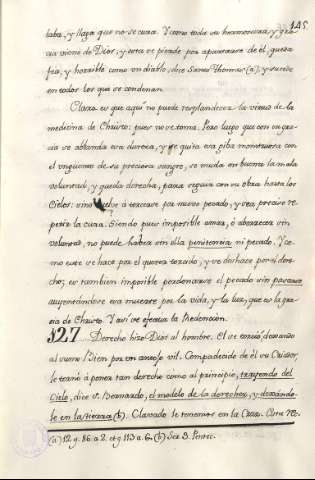 145
laba, y llaga que no se cura. Y como toda su hermosura, y gra
cia viene de Dios, y esta se pierde por apartarse de él, queda
fea, y horrible como un diablo, dice Santo Thomas (a), y sucede
en todos los que se condenan.
Claro es que aquí no puede resplandecer la virtud de la
medicina de Christo: pues no se toma. Pero luego que con su gra
cia se ablanda esa dureza, y se quita esa giba monstruosa con
el ungüento de su preciosa sangre, se muda en buena la mala
voluntad, y queda derecha, para seguir con su obra hasta los
Cielos: sino vuelve a torcerse por nuevo pecado, y sea preciso re
petir la cura. Siendo pues imposible amar, ó aborrecer sin
voluntad, no puede haber sin ella penitencia ni pecado. Y co
mo este se hace por el querer torcido, y se deshace por el dere
cho; es tambien imposible perdonarse el pecado sin
ausentandose esa muerte por la vida, y la luz, que es la gra
cia de Christo. Y así se efectua la Redencion.
327 Derecho hizo Dios al hombre. El se torció, dexando
al sumo Bien por un antojo vil. Compadecido de él su Criador,
le tornó á poner tan derecho como al principio, trayendo del
Cielo, dice S. Bernardo, el modelo de la derechez, y dexando
le en la tierra (b). Clavado le tenemos en la Cruz. Otra
(a) 12 q. 86. a 2. et q. 113 a. 6. (b) Ser 3. Pentec.